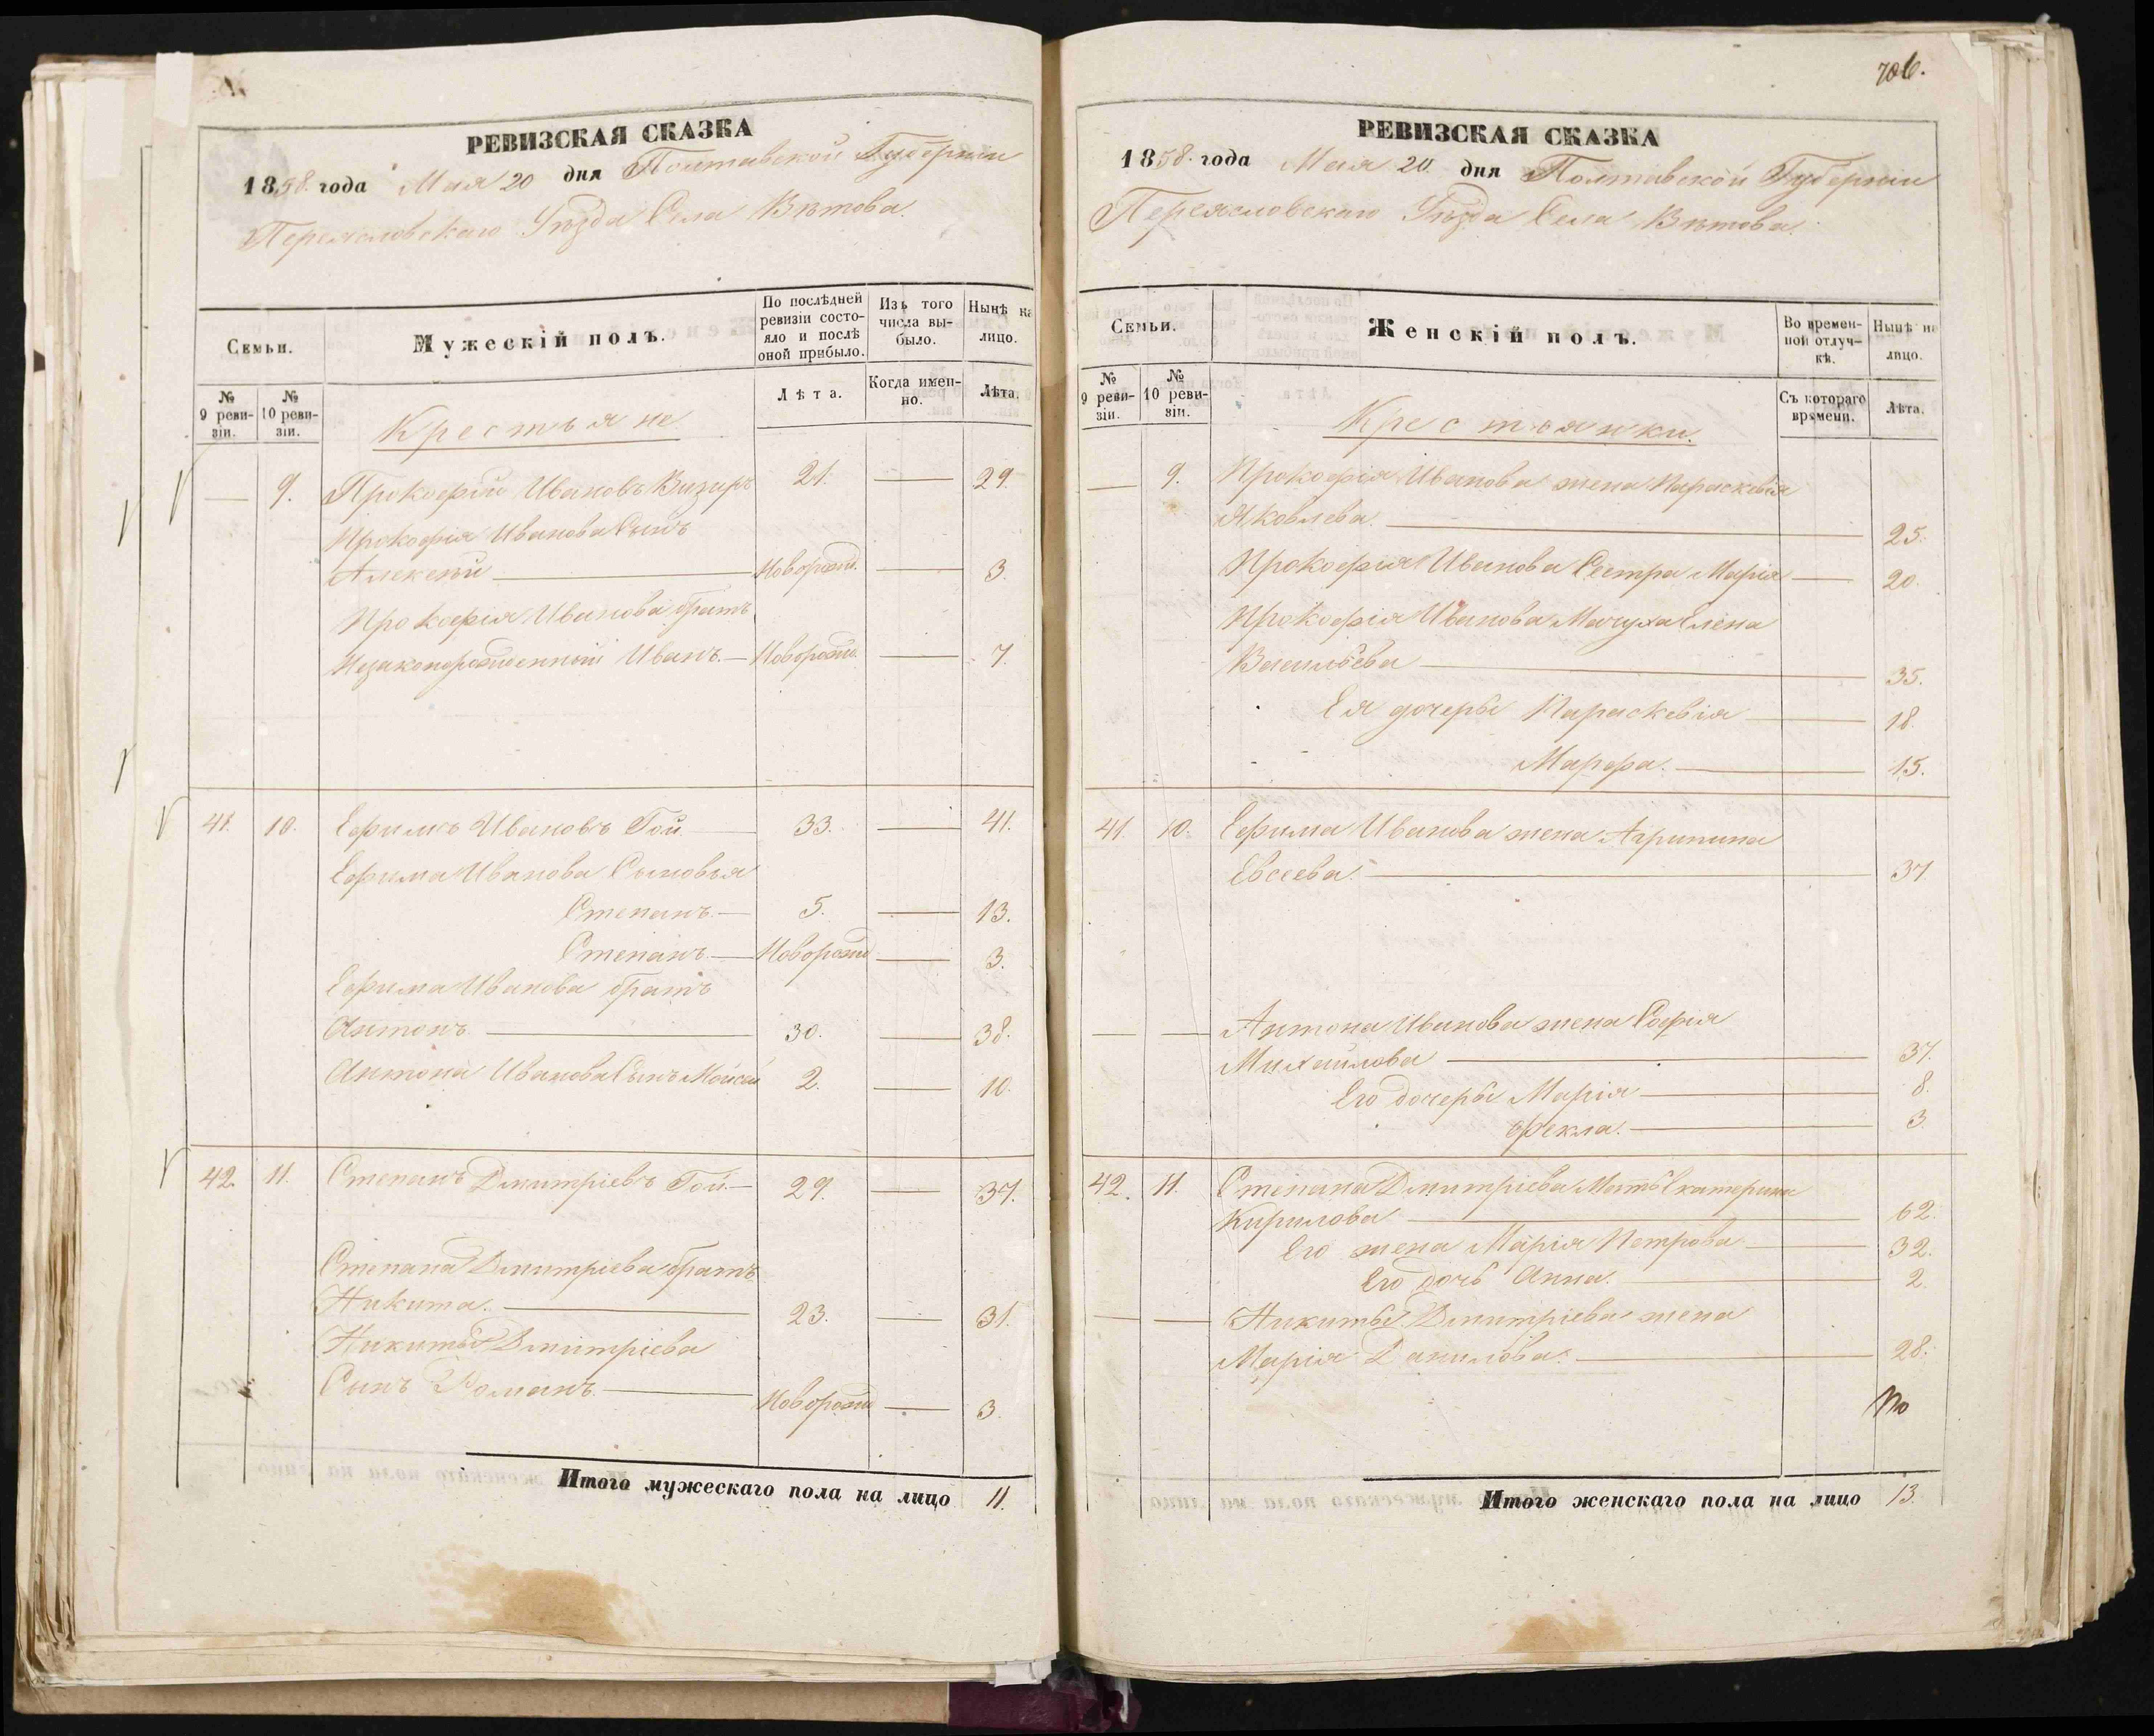 РЕВИЗСКАЯ СКАЗКА
1858. года Мая 20 дня Полтавской Губерніи
Переясловскаго Уѣзда Села Вѣтова.
Семьи.
Мужескій полъ.
По послѣдней ревизіи состояло и послѣ оной прибыло.
Изъ того числа выбыло.
Нынѣ на лицо.
№ 9 ревизіи.
№ 10 ревизіи.
Лѣта.
Когда именно.
Лѣта.
Крестьяне
— 9. Прокофій Ивановъ Визиръ 21. — 29.
Прокофія Иванова Сынъ
Алексѣй — Новорожд. — 3.
Прокофія Иванова братъ
Незаконорожденный Иванъ. — Новорожд. — 7.
41. 10. Ефимъ Ивановъ Гой. — 33. — 41.
Ефима Иванова Сыновья
Степанъ. — 5. — 13.
Степанъ. — Новорожд — 3.
Ефима Иванова братъ
Антонъ — 30. — 38.
Антона Иванова Сынъ Мойсей 2. — 10.
42. 11. Степанъ Дмитріевъ Гой. — 29. — 37.
Степана Дмитріева братъ
Никита. — 23. — 31.
Никиты Дмитріева
Сынъ Романъ. — Новорожд — 3.
Итого мужескаго пола на лицо 11.
706.
РЕВИЗСКАЯ СКАЗКА
1858. года Мая 20. дня Полтавской Губерніи
Переясловскаго Уѣзда Села Вѣтова.
Семьи.
Женскій полъ.
Во временной отлучкѣ.
Нынѣ на лицо.
№ 9 ревизіи.
№ 10 ревизіи.
Съ котораго времени.
Лѣта.
Крестьянки.
— 9. Прокофія Иванова жена Параскевія
Яковлева. — 25.
Прокофія Иванова Сестра Марія — 20.
Прокофія Иванова Мачуха Елена
Васильева — 35.
Ея дочеры Параскевія — 18.
Марфа. — 15.
41. 10. Ефима Иванова жена Агрипина
Евсеева. — 37.
— — Антона Иванова жена Софія
Михайлова — 37.
Его дочеры Марія — 8.
Фекла. — 3
42. 11. Степана Дмитріева Мать Екатерина
Кирилова — 62.
Его жена Марія Петрова — 32.
Его дочь Анна. — 2.
— — Никиты Дмитріева жена
Марія Данилова. — 28.
По
Итого женскаго пола на лицо 13.